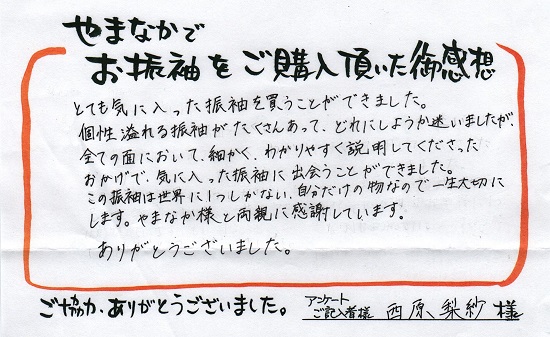 やまなかで
お振袖をご購入頂いた御感想
とても気に入った振袖を買うことができました。
個性溢れる振袖がたくさんあって、どれにしようか迷いましたが、
全ての面において、細かく、わかりやすく説明してくださった
おかげで、気に入った振袖に出会うことができました。
この振袖は世界に1つしかない、自分だけの物なので一生大切に
します。やまなか様と両親に感謝しています。
ありがとうございました。
ご協力、ありがとうございました。
アンケート
ご記入者様 西原、梨紗 様